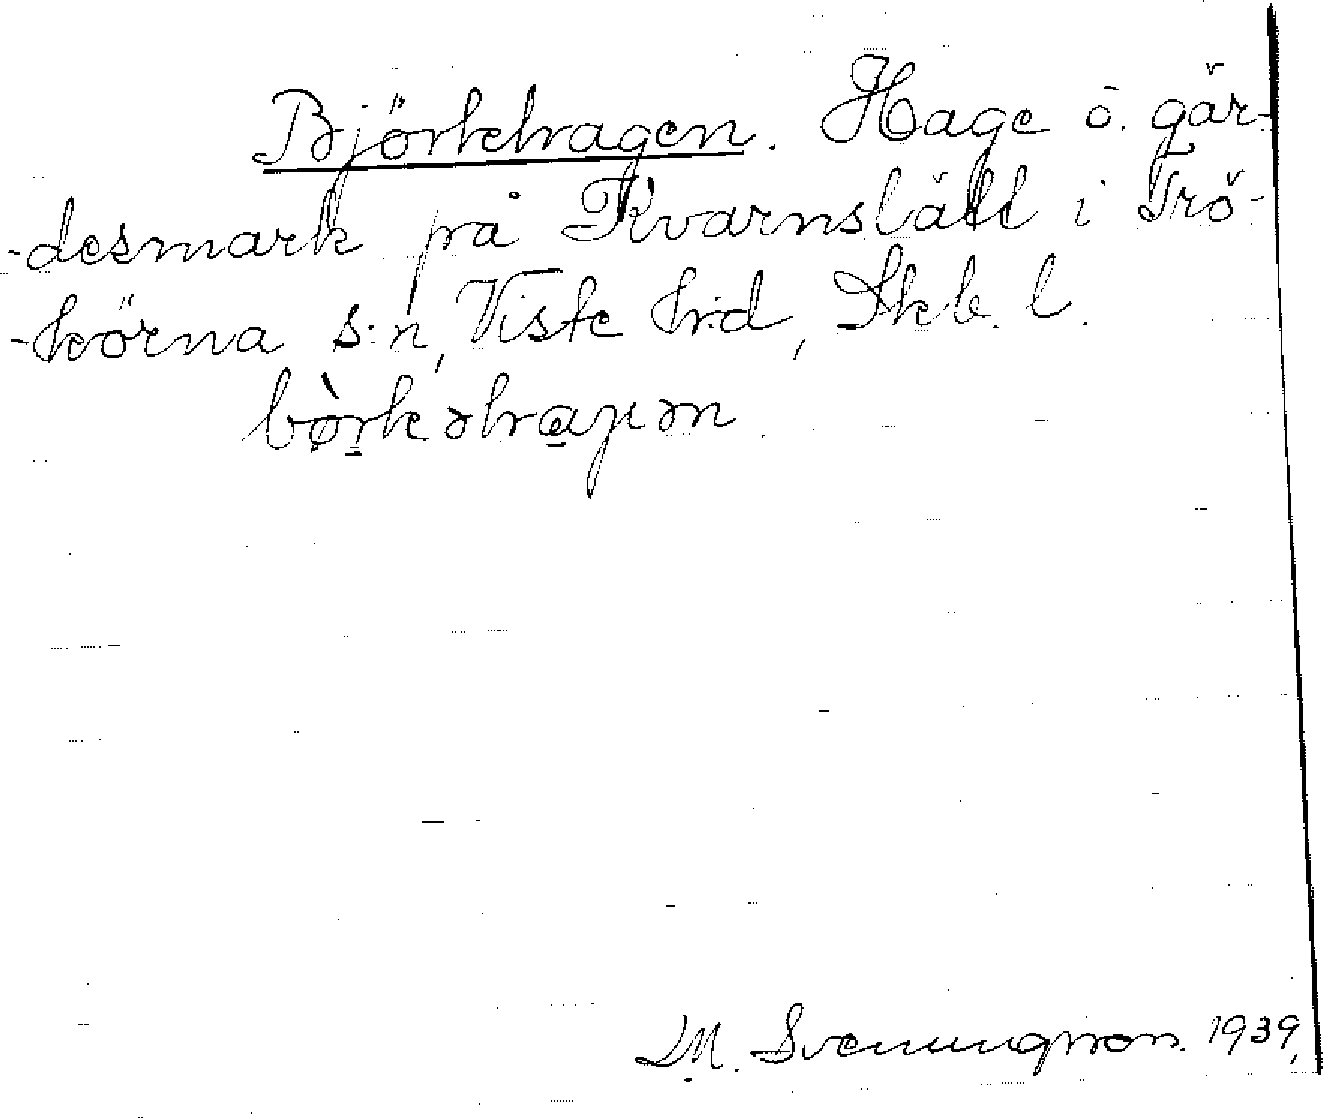 Björkehagen. Hage ö. gär-
-desmark på Kvarnslätt i Trö-
-körna s:n, Viste hrd, Skb. l.
bø̀rkəhaγən
M. Svenungsson. 1939.